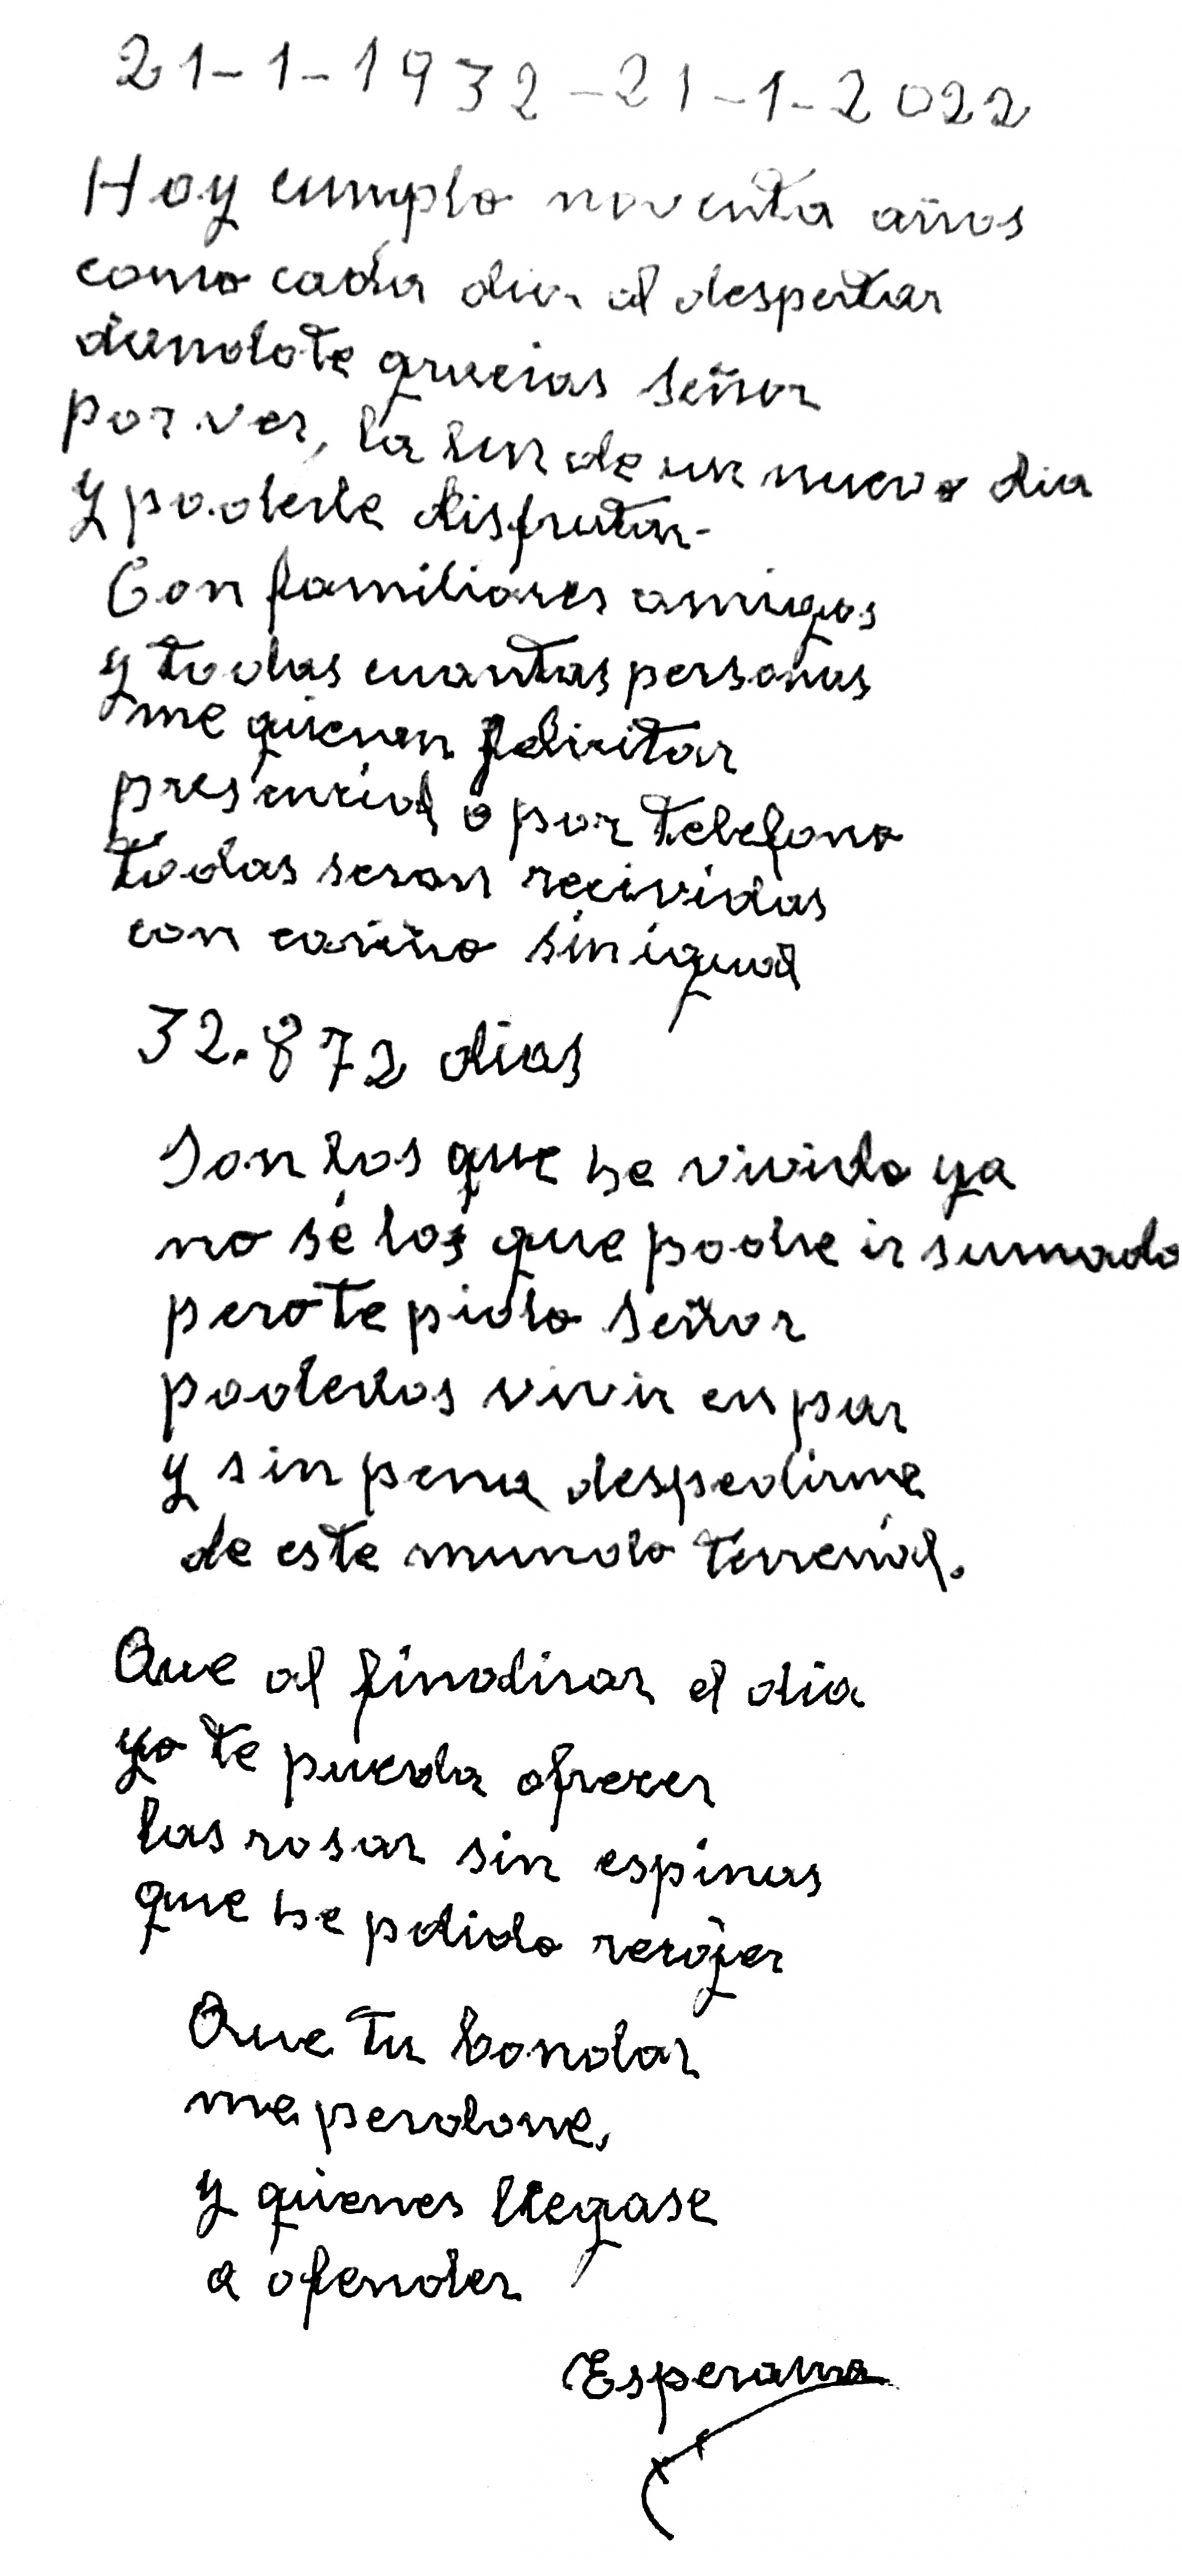 21-1-1932-21-1-2022
Hoy cumplo noventa años
como cada dia al despertar
dandote gracias Señor
por ver, la luz de un nuevo dia
y poderle disfrutar-
Con familiares amigos
y todas cuantas personas
me quieran felicitar
presencial o por telefono
todas seran recividas
con cariño sin igual
32.872 dias
Son los que he vivido ya
no sé los que podre ir sumado
pero te pido Señor
poderlos vivir en paz
y sin pena despedirme
de este mundo terrenal.
Que al finalizar el dia
yo te pueda ofrecer
las rosas sin espinas
que he pdido recojer
Que tu bondaz
me perdone,
y quienes llegase
a ofender
Esperanza